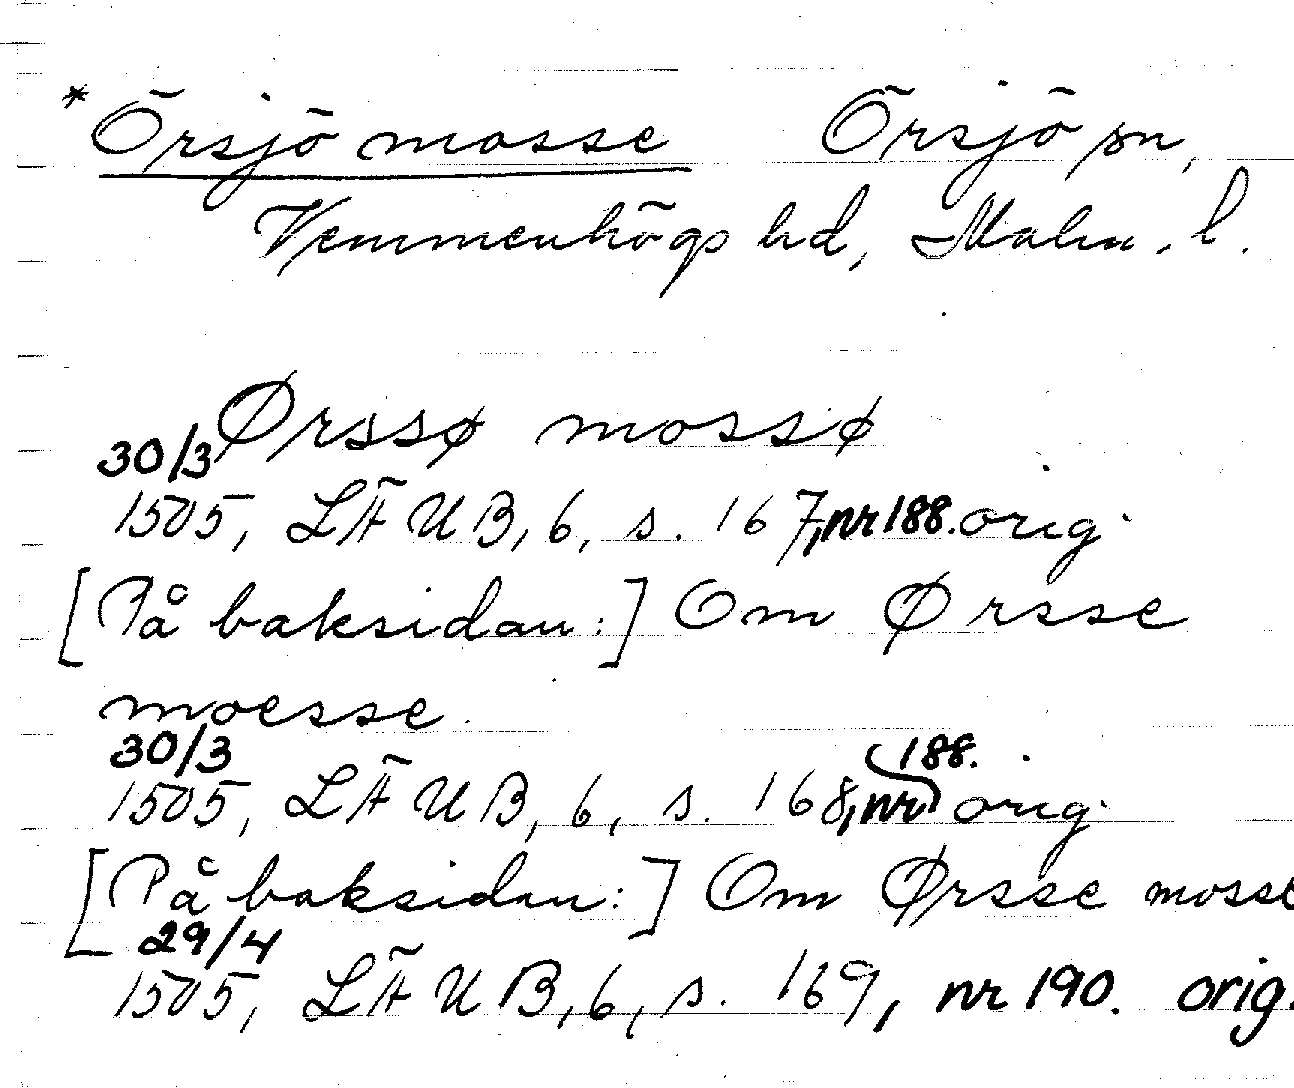 *Örsjö mosse Örsjö sn,
Vemmenhögs hd, Malm. l.
Ørssø mossø
30/3
1505, LÄUB, 6, s. 167, nr 188. orig.
[På baksidan:] Om Ørsse
moesse.
30/3
1505, LÄUB, 6, s. 168, nr 188. orig.
[På baksidan:] Om Ørsse mosse
29/4
1505, LÄUB, 6, s. 169, nr 190. orig.